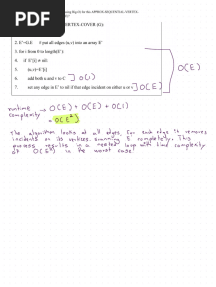 PDF
VERTEX-COVER (G):
2. E'=G.E # put all edges (u,v) into an array E'
3. for i from 0 to length(E'):
4. if E'[i] ≠ nil:
5. (u,v)=E'[i]
6. add both u and v to C ] O(1)
7. set any edge in E' to nil if that edge incident on either u or v ] O(E)
O(E)
runtime → O(E) * O(E) + O(1)
complexity
= O(E²)
The algorithm looks at all edges. For each edge it removes
incidents on its vertices, scanning E completely. This
process results in a nested loop with final complexity
of O(E²) in the worst case.